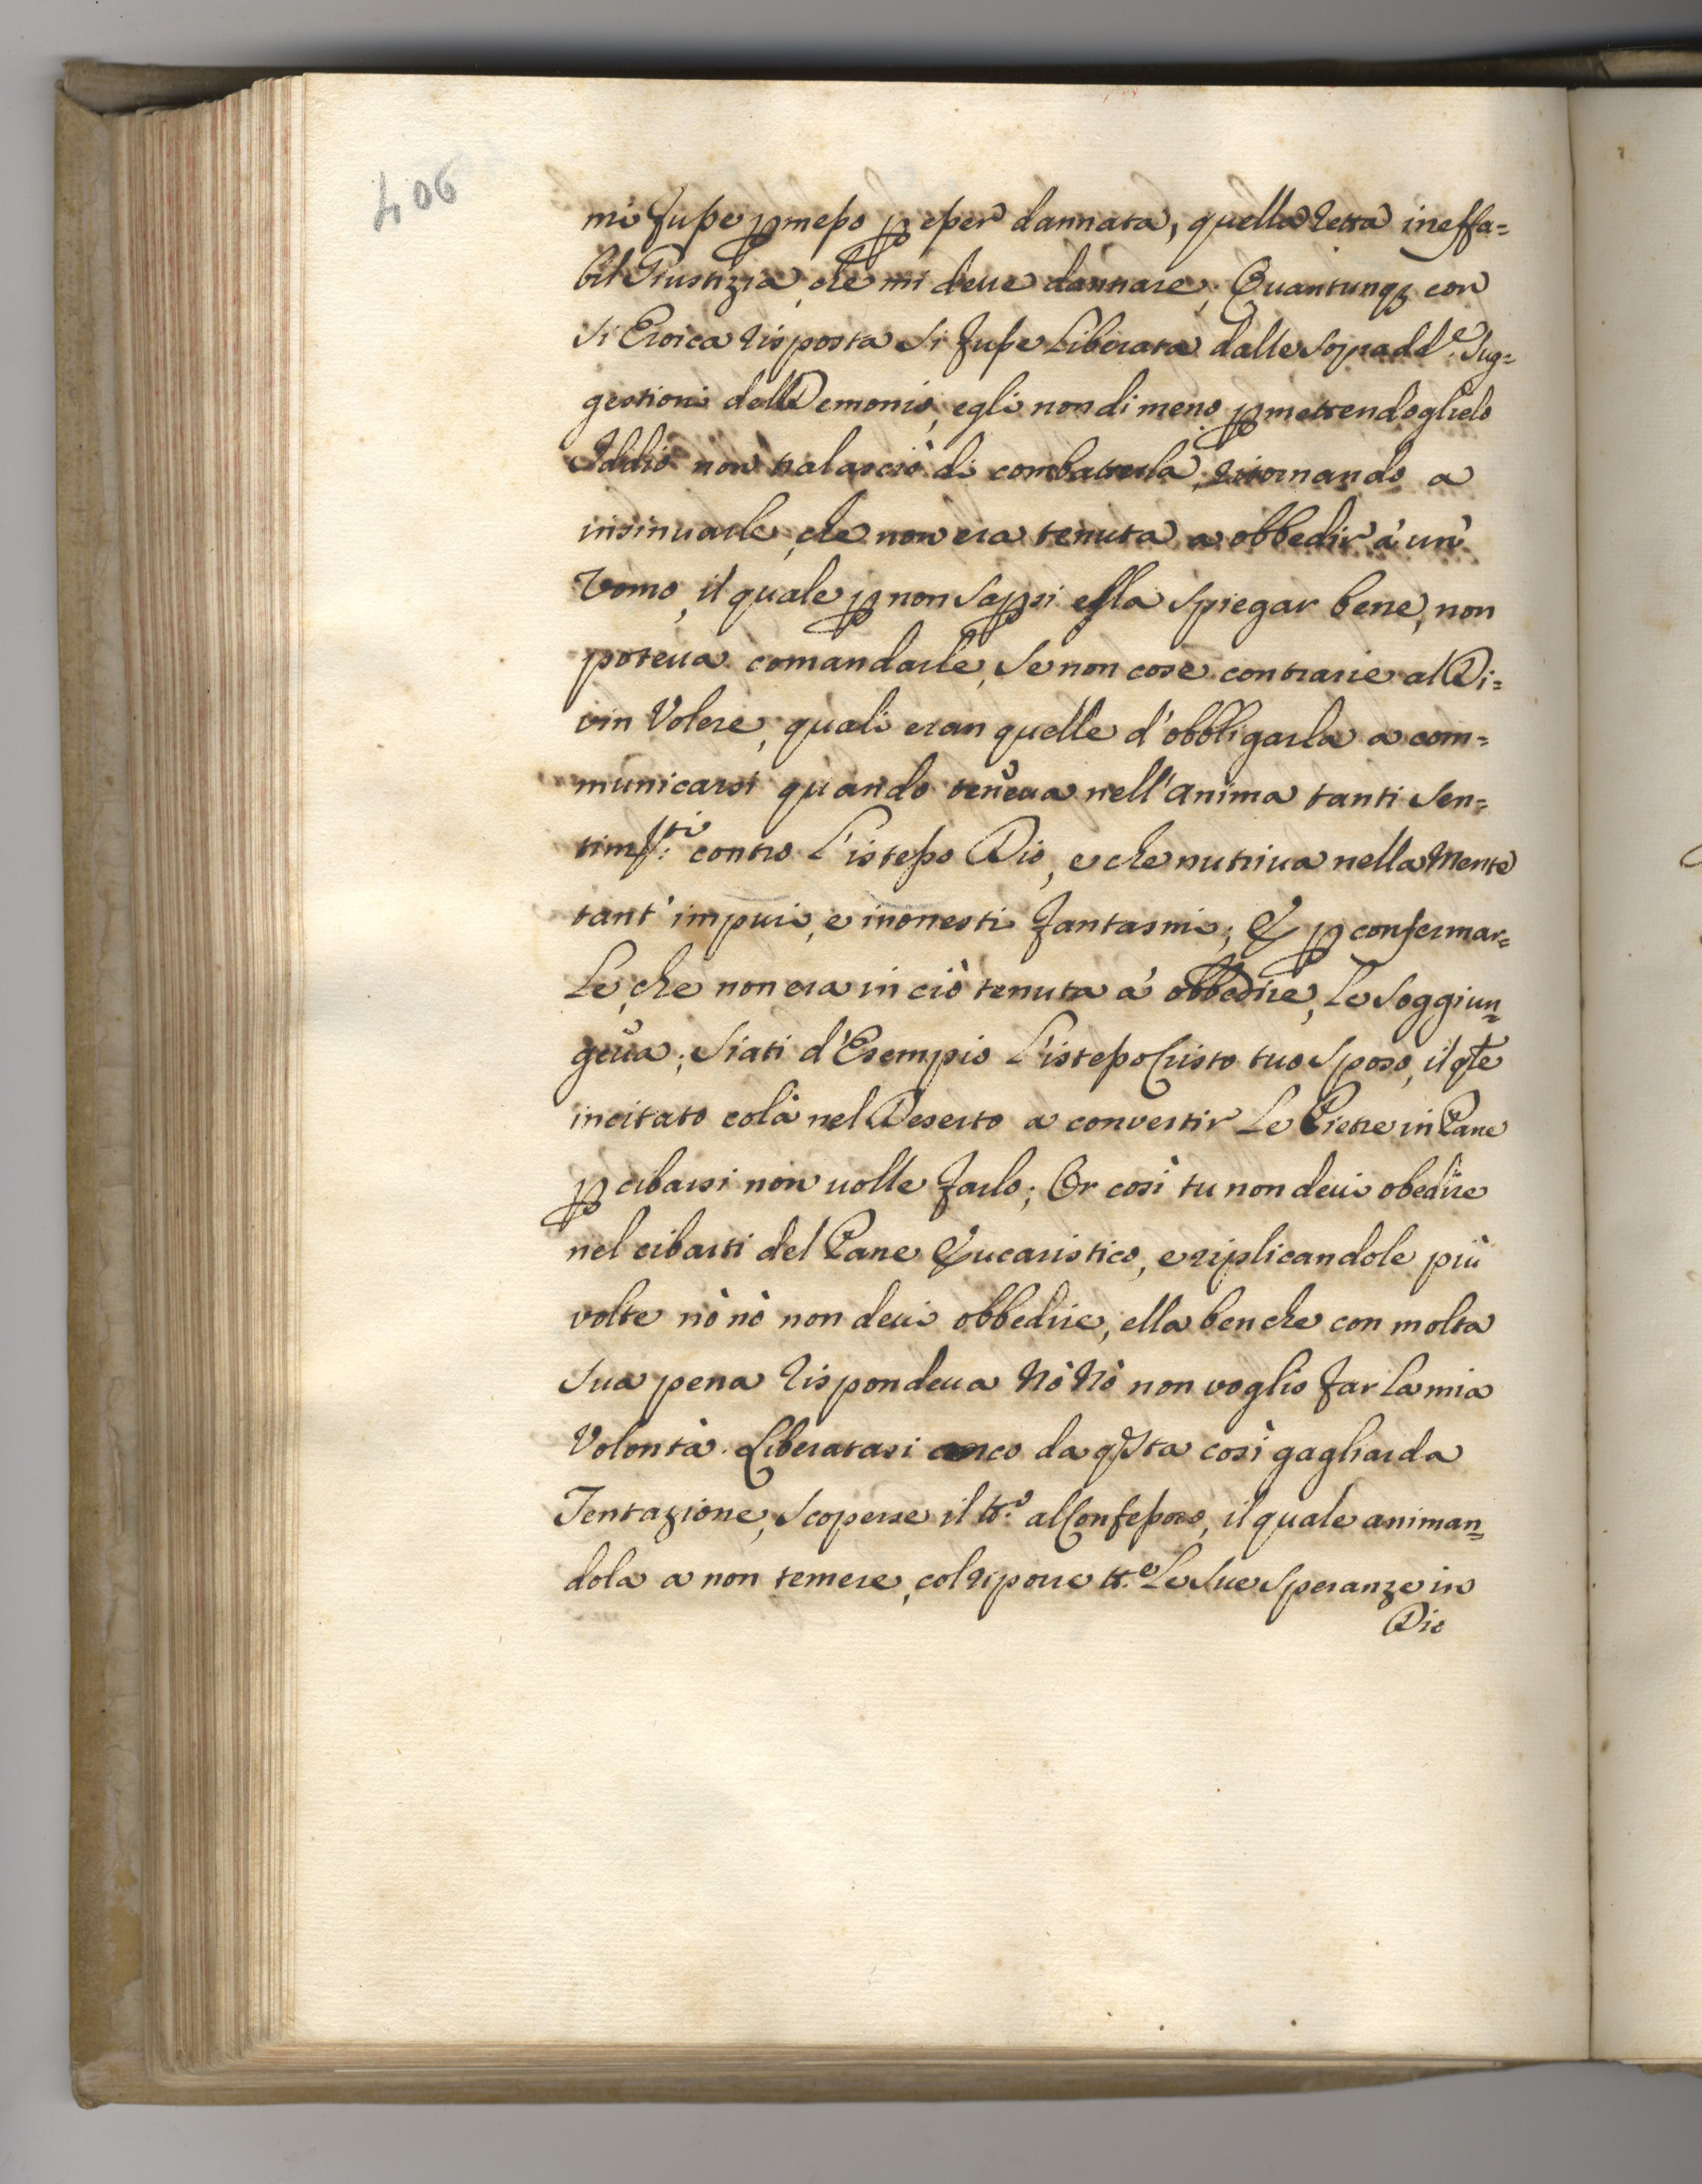 406
mi fusse ꝑmesso ꝑ esser dannata, quella retta ineffa=
bil Giustizia, che mi deue dannare; Quantunqꝫ con
si Eroica risposta si fusse Liberata dalle sopradd.e Sug=
gestioni dell Demonio, egli nondimeno ꝑmettendoglielo
Iddio non tralasciò di combatterla, ritornando a
insinuarle, che non era tenuta a obbedir à un'
Vomo, il quale ꝑ non saꝑsi essa spiegar bene, non
poteua comandarle, se non cose contrarie al Di=
vin Volere, quali eran quelle d'obbligarla a com=
municarsi quando teneua nell'anima tanti sen=
tim.ti contro L'istesso Dio, e che nutriua nella Mente
tant' impuri, e inonesti fantasmi; & ꝑ confermar=
Le, che non era in ciò tenuta à obbedire, Le soggiun=
geua; Siati d'Esempio L'istesso Cristo tuo Sposo, il qle
incitato colà nel Deserto a convertir Le Pietre in Pane
ꝑ cibarsi non uolle farlo; Or così tu non deui obedire
nel cibarti del Pane Eucaristico, e riplicandole più
volte nò nò non deui obbedire, ella benche con molta
sua pena rispondeua Nò Nò non voglio far la mia
Volontà. Liberatasi anco da qsta così gagliarda
Tentazione, scoperse il tt.o al Confessoro, il quale animan=
dola a non temere, col riporre tt.e Le sue speranze in
Dio